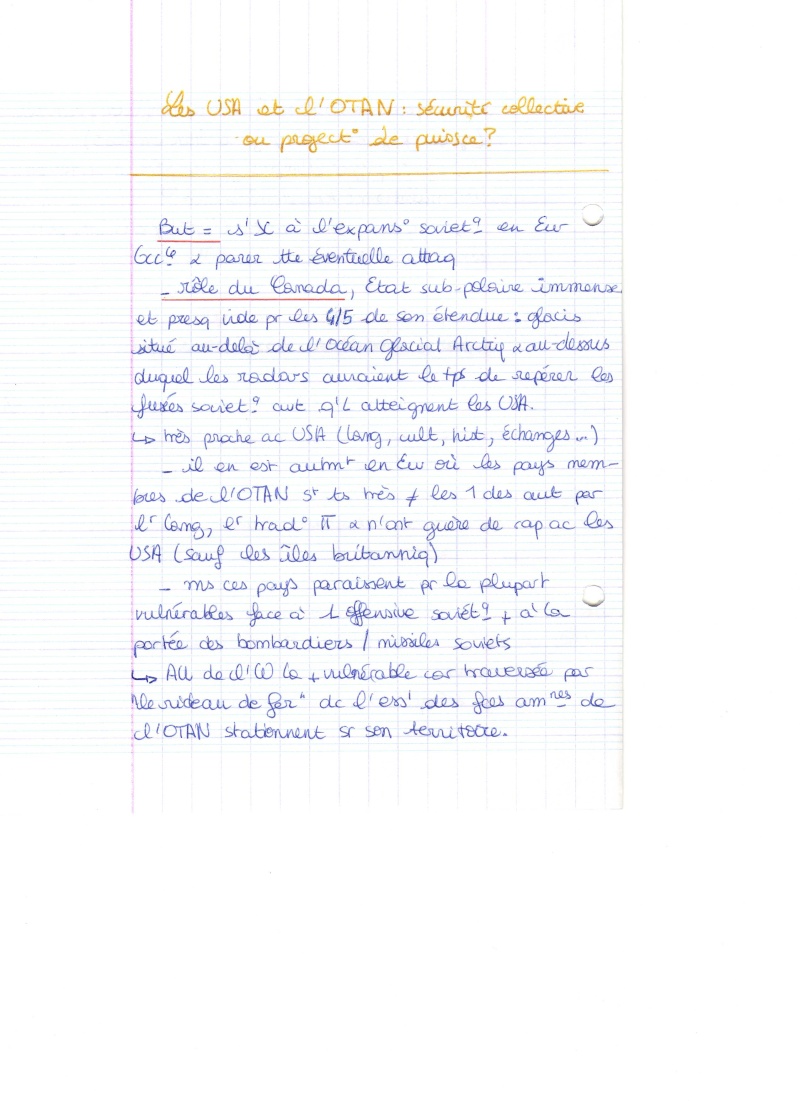 Les USA et l'OTAN : sécurité collective
ou project° de puissce ?
But = s'X à l'expans° soviet? en Eur
Occ? & parer tte éventuelle attaq
- rôle du Canada, Etat sub-polaire immense
et presq vide pr les 4/5 de son étendue : glacis
situé au-delà de l'Océan Glacial Arctiq & au-dessus
duquel les radars auraient le tps de repérer les
fusées soviet? avt q'L atteignent les USA.
↳ très proche ac USA (lang, cult, hist, échanges...)
- il en est autmt en Eur où les pays mem-
bres de l'OTAN st ts très ≠ les 1 des aut par
lr lang, lr trad° π & n'ont guère de rap ac les
USA (sauf les îles britanniq)
- ms ces pays paraissent pr la plupart
vulnérables face à 1 offensive soviét? + à la
portée des bombardiers / missiles soviets
↳ All de l'W la + vulnérable car traversée par
"le rideau de fer" dc l'ess' des fces amnes de
l'OTAN stationnent sr son territoire.